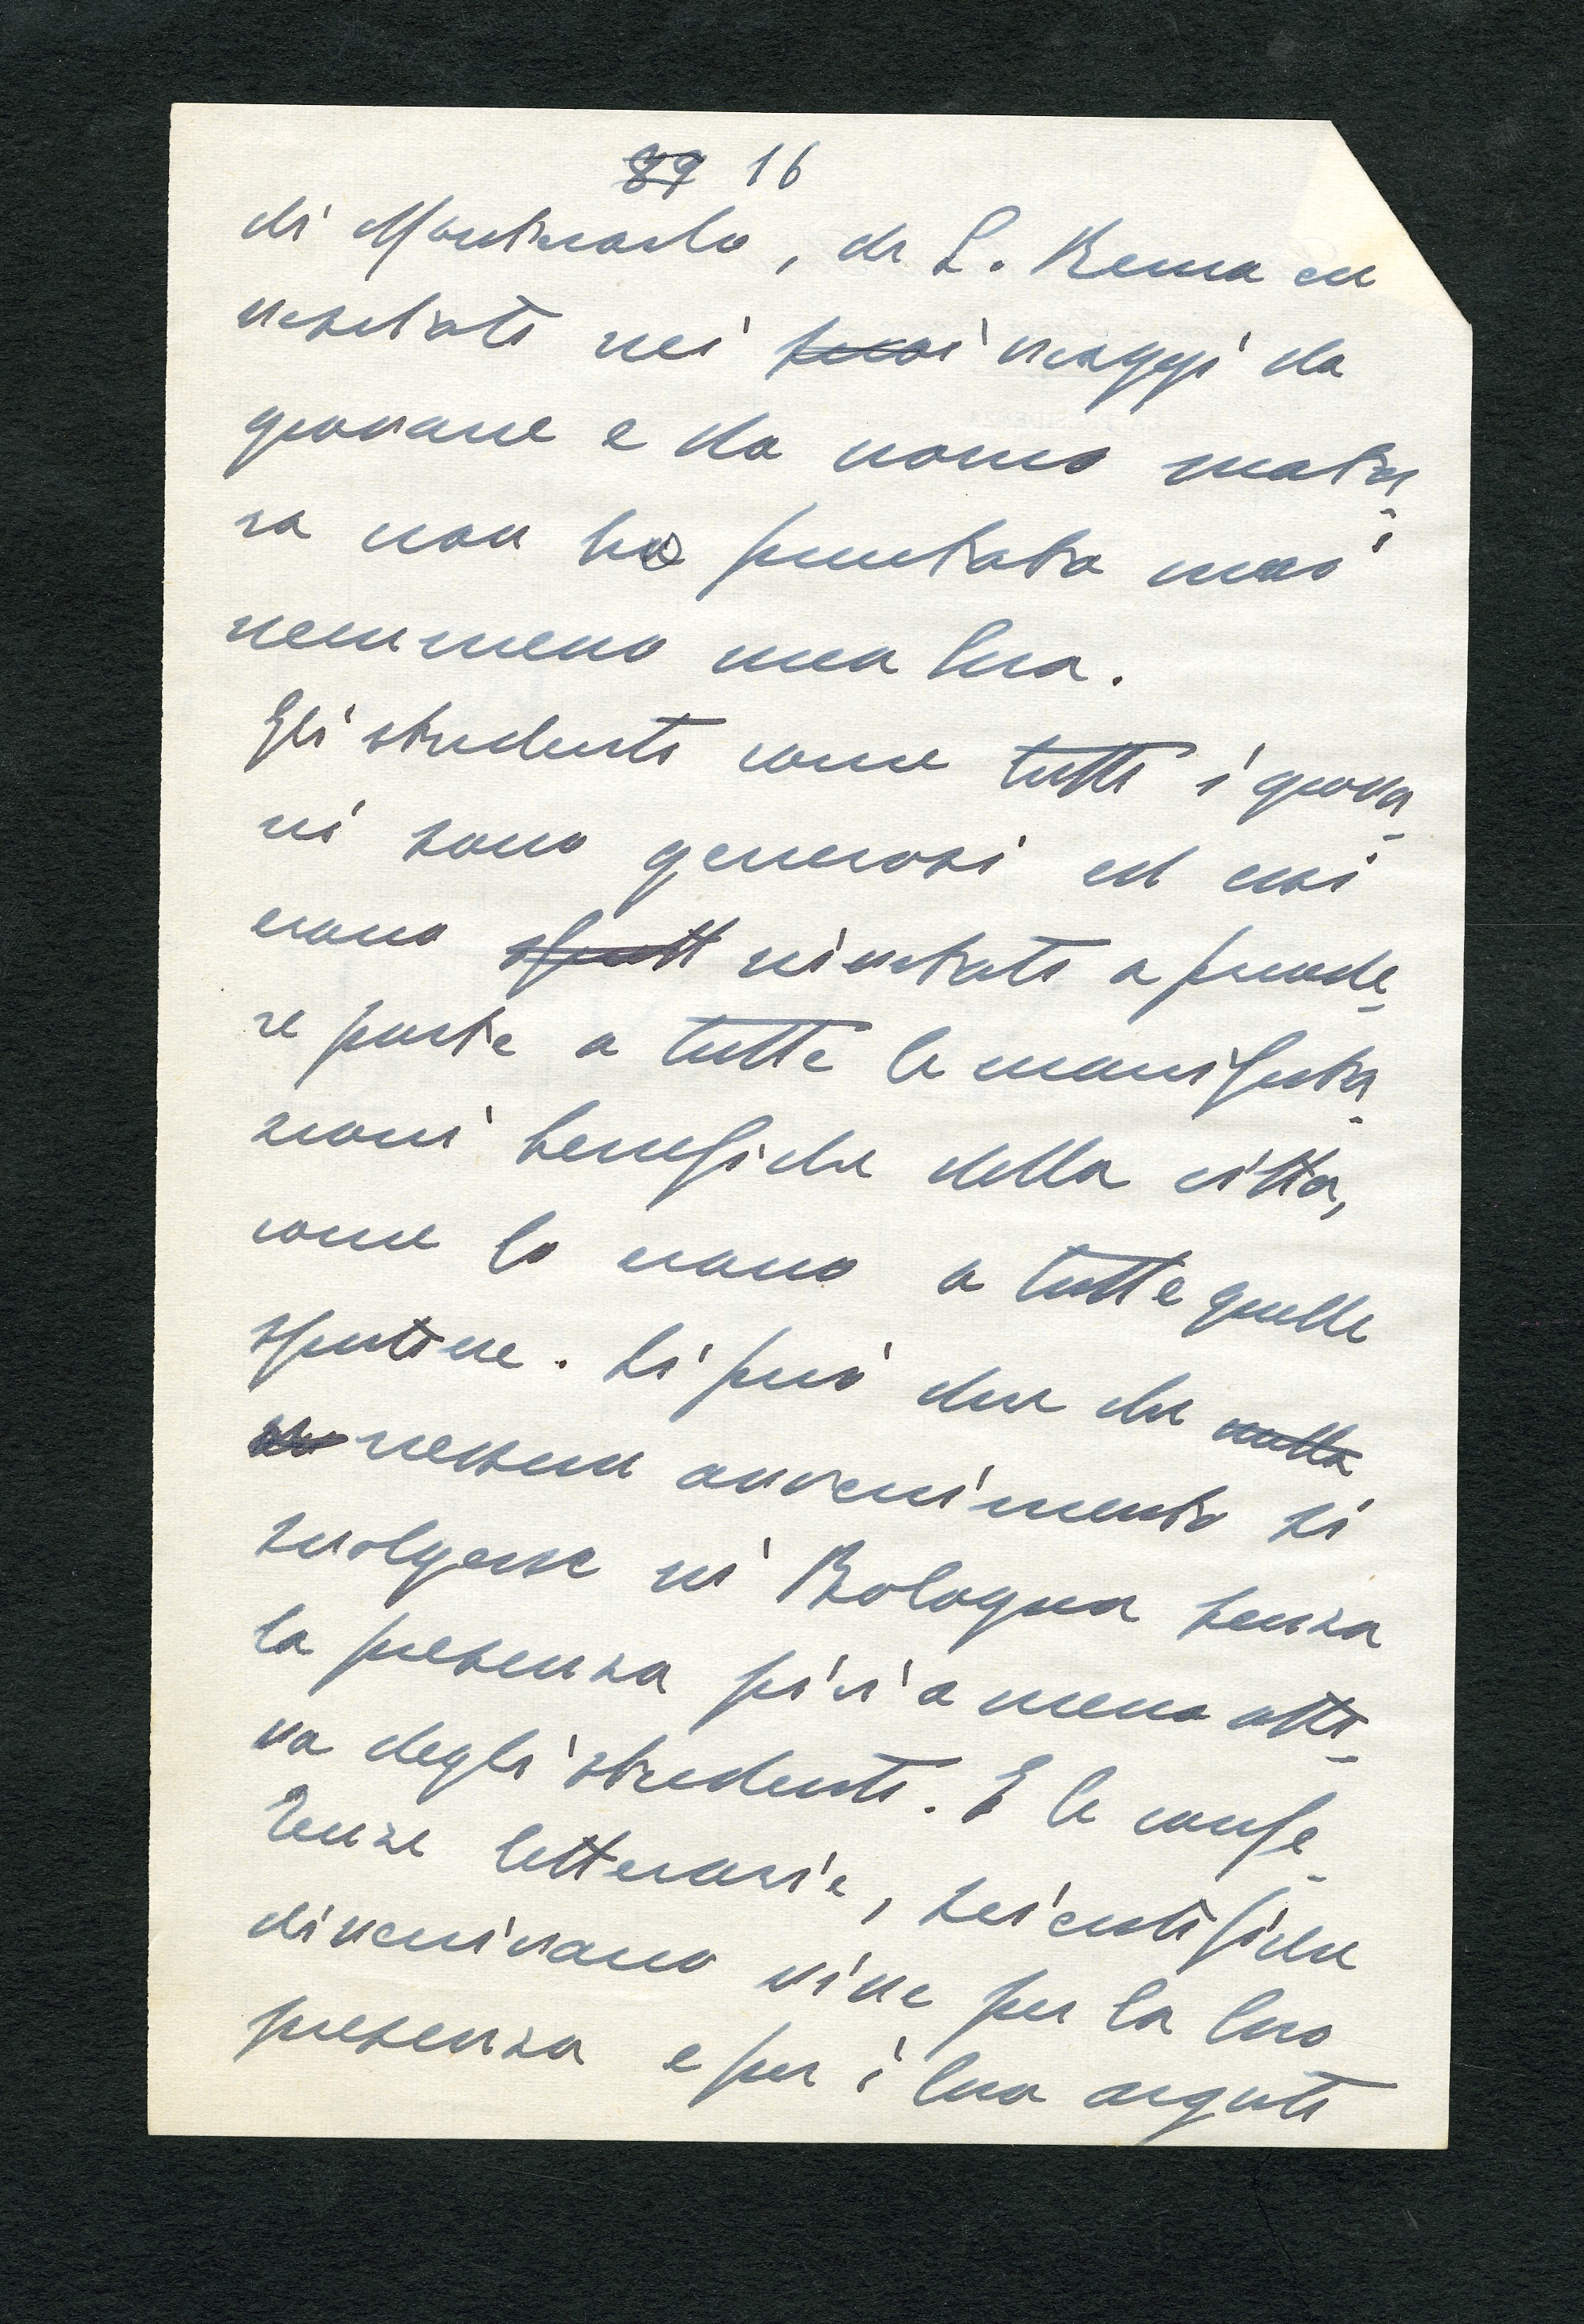 89 16
di Montecarlo, di S. Remo ecc
visitati nei suoi viaggi da
giovane e da uomo matu
ro non ho puntato mai
nemmeno una lira.
Gli studenti come tutti i giova
ni sono generosi ed essi
erano invitati a prende
re parte a tutte le manifesta
zioni benefiche della città,
come lo erano a tutte quelle
sportive. Si può dire che nulla
nessun avvenimento si
svolgesse in Bologna senza
la presenza più o meno atti
va degli studenti. E le confe
renze letterarie, scientifiche
divenivano vive per la loro
presenza e per i loro arguti